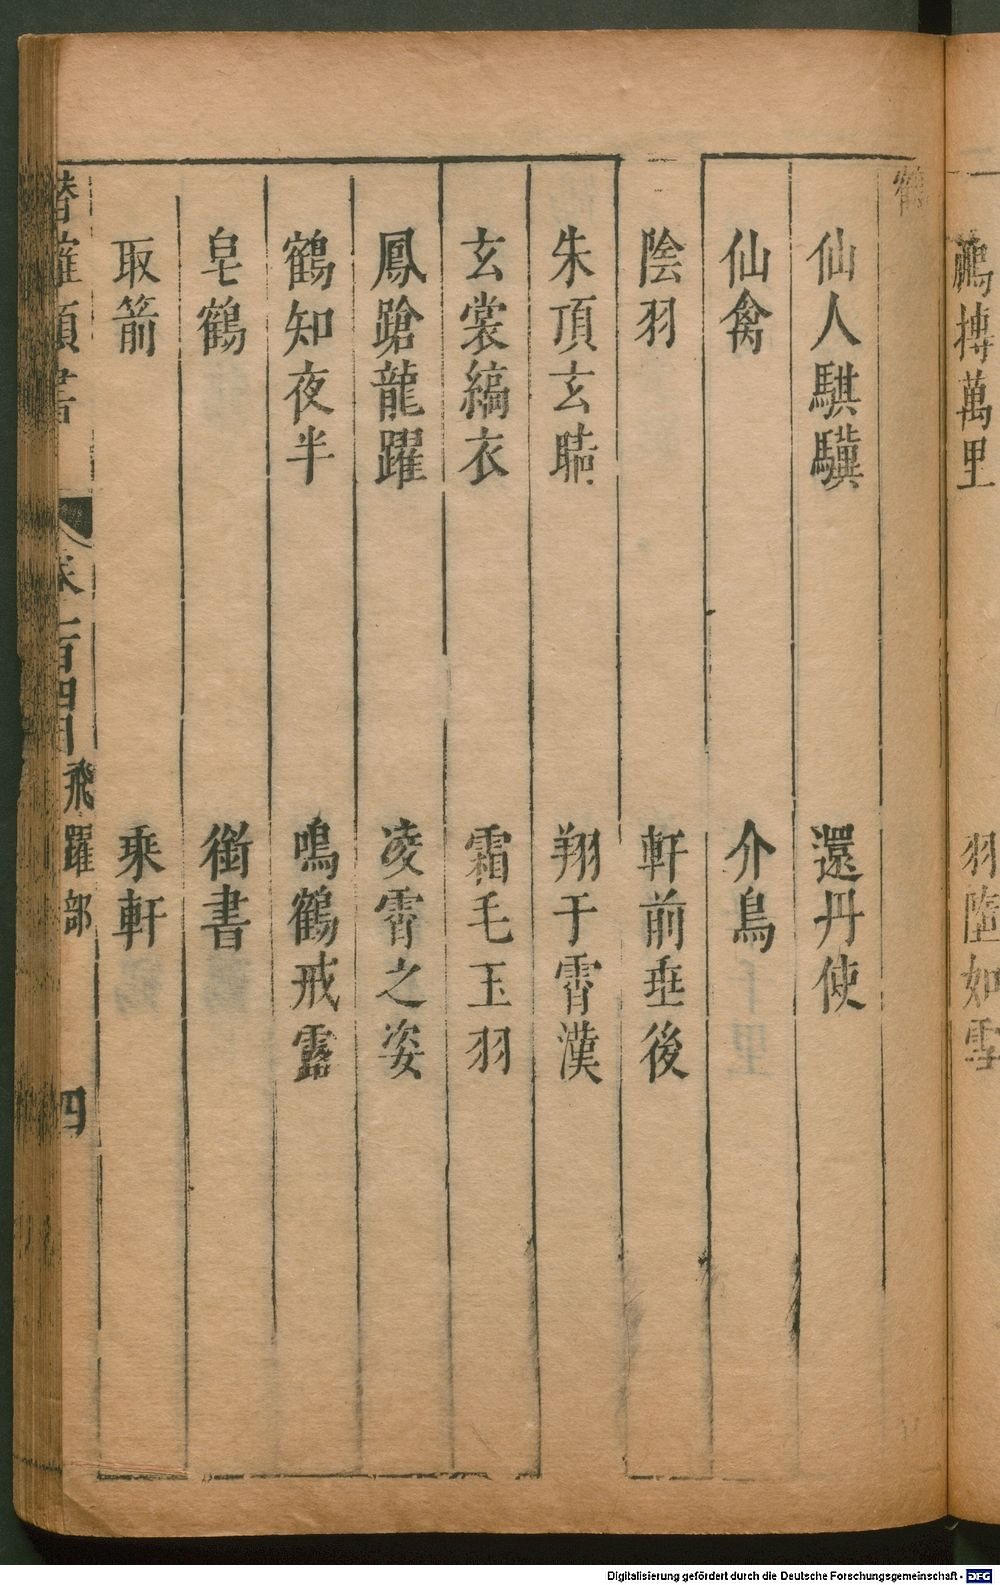 鵬摶萬里 羽墮如雪
鶴
仙人騏驥 還丹使
仙禽 介鳥
陰羽 軒前垂後
朱頂玄睛 翔于霄漢
玄裳縞衣 霜毛玉羽
鳳蹌龍躍 凌霄之姿
鶴知夜半 鳴鶴戒露
皂鶴 銜書
取箭 乘軒
卷一百四 飛躍部 四
Digitalisierung gefördert durch die Deutsche Forschungsgemeinschaft - DFG